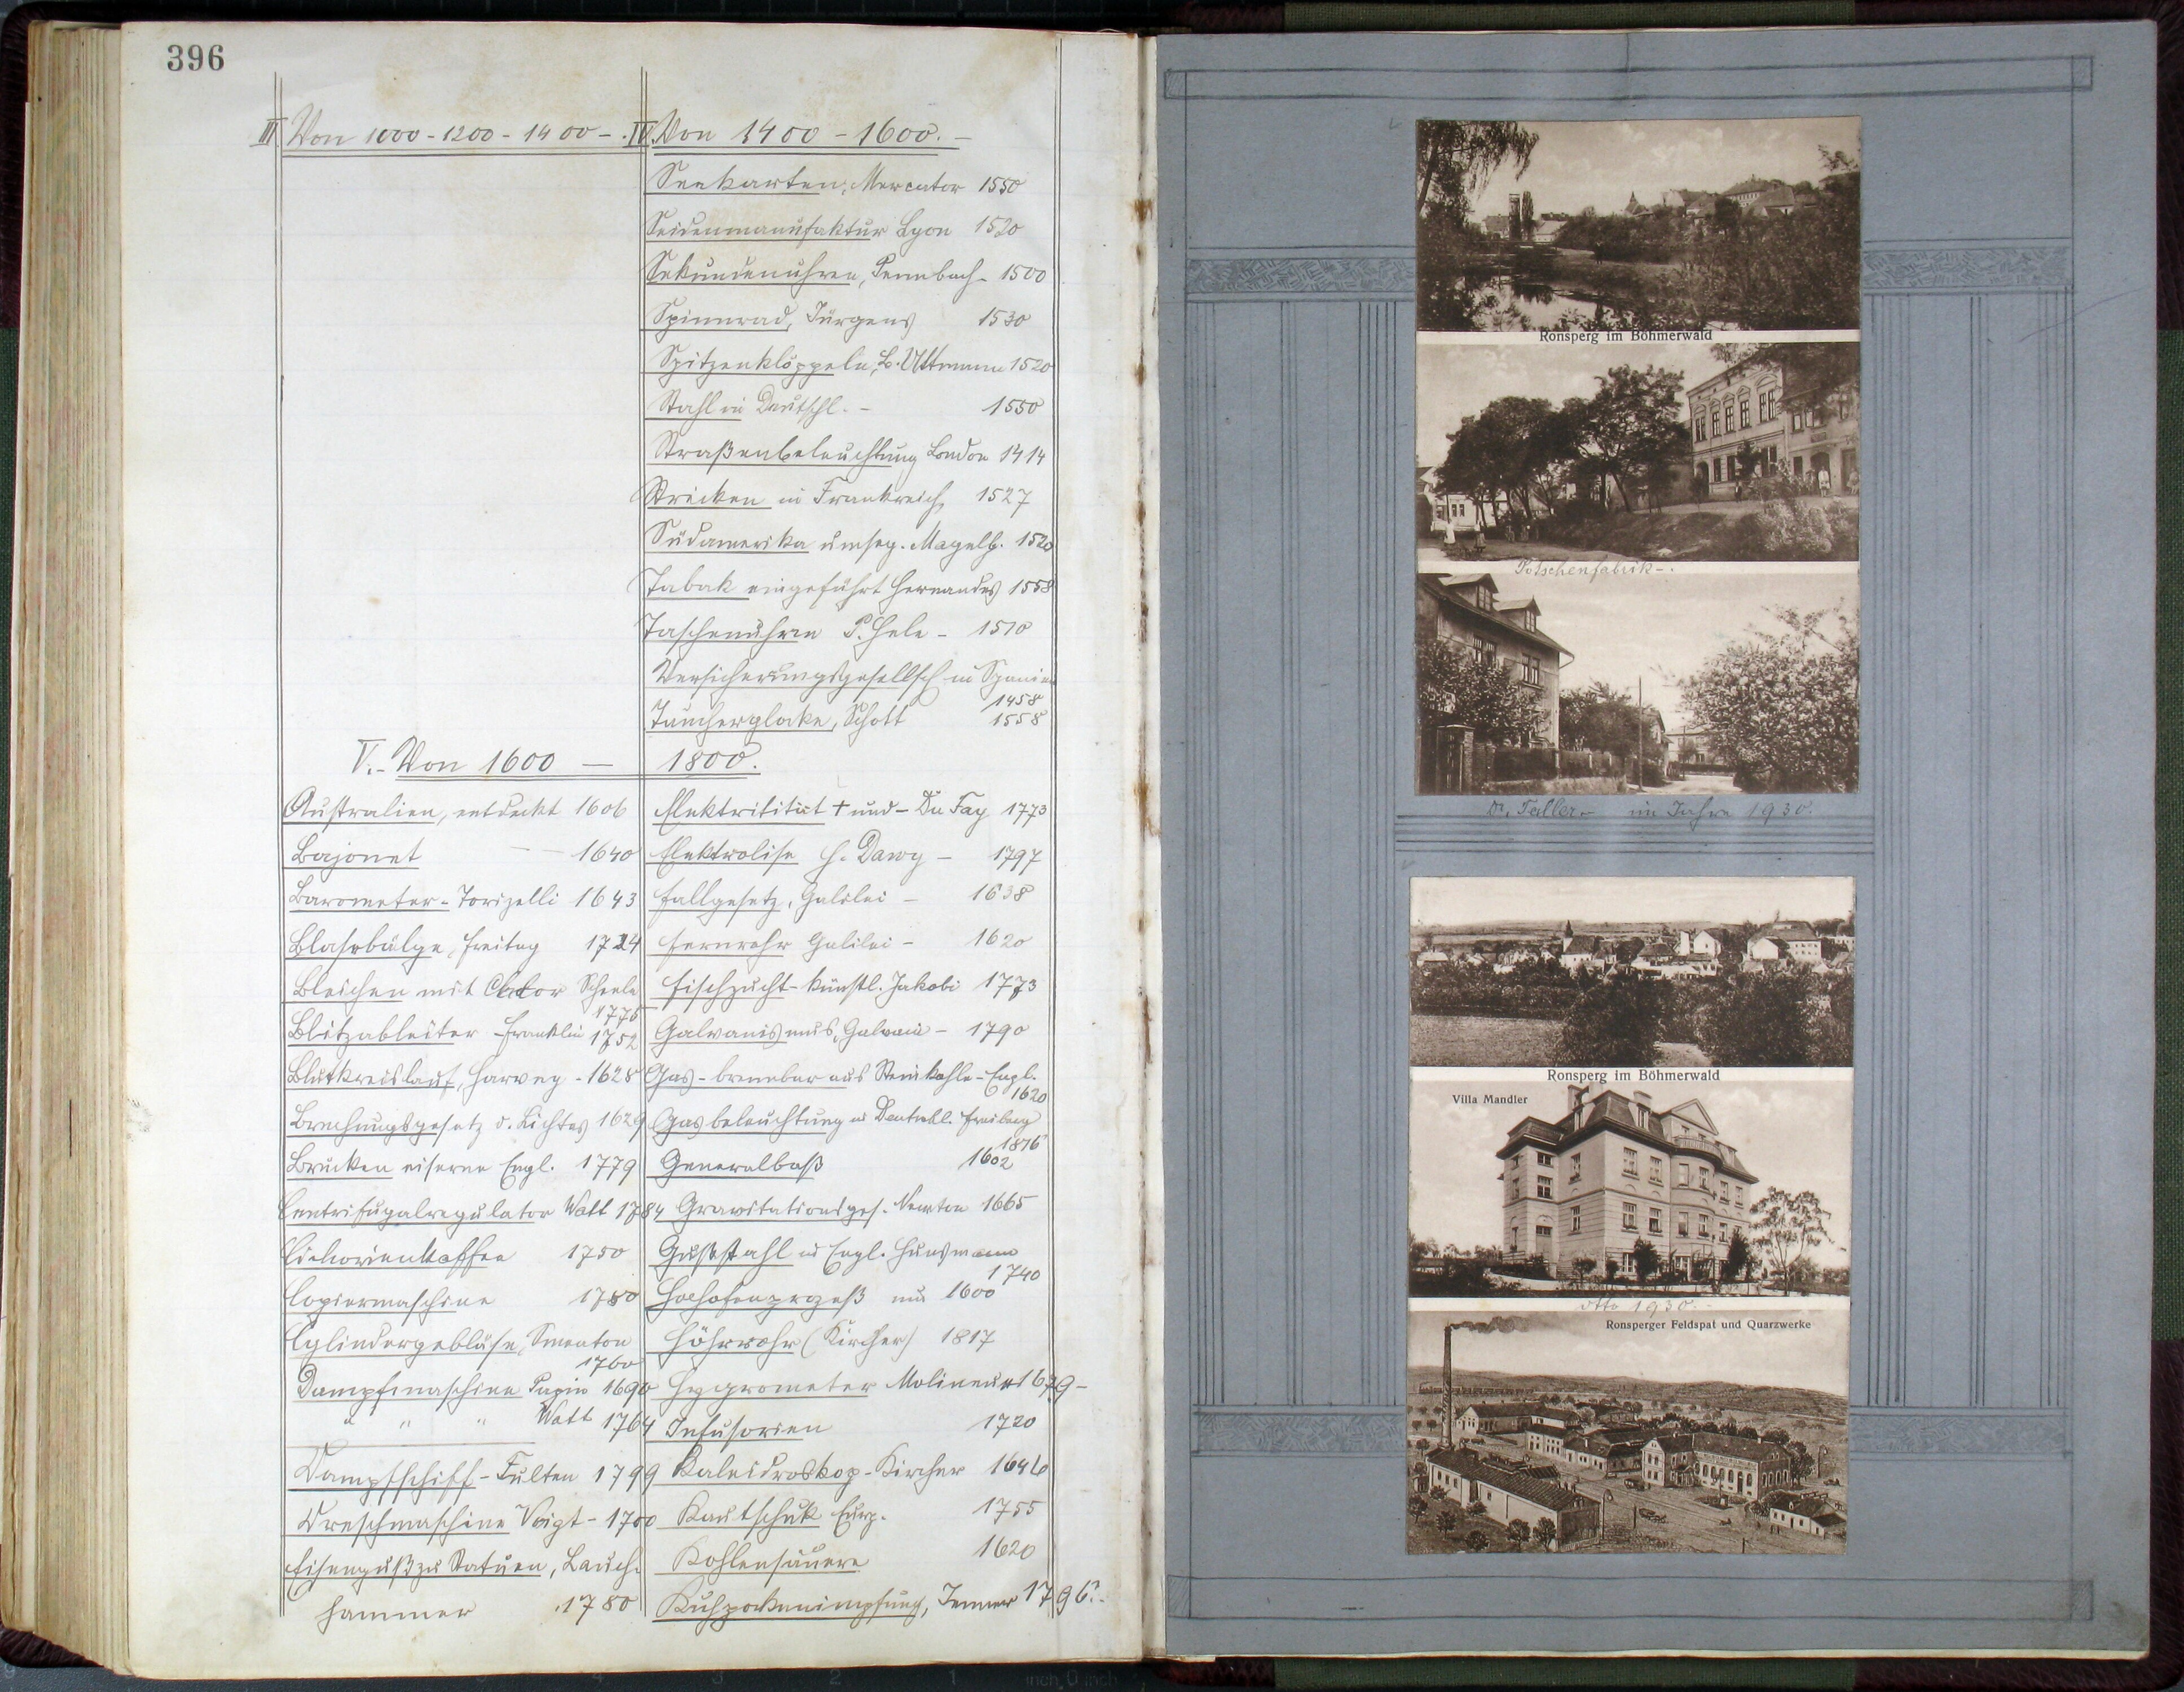 396
III Von 1000 - 1200 - 1400 -.
IV. Von 1400 - 1600. -
Seekarten, Mercator 1550
Seidenmanufaktur Lyon 1520
Sekundenuhren, 1500
Spinnrad, Jürgens 1530
Spitzenklöppeln, B. Uttmann 1520
Stahl in Deutschl. - 1550
Straßenbeleuchtung London 1414
Stricken in Frankreich 1527
Südamerika umseg. Magelh. 1520
Tabak eingeführt Hernandes 1558
Taschenuhren P. Hele - 1510
Versicherungsgesellsch in Spanien
1458
Taucherglocke, Schott 1558
V. - Von 1600 — 1800.
Australien, entdeckt 1606
Bajonet — 1640
Barometer - Torizelli 1643
Blasebälge, Freitag 1724
Bleichen mit Chlor Scheele
1775
Blitzableiter - Franklin 1752
Blutkreislauf, Harvey - 1628
Brechungsgesetz d. Lichtes 1629
Brücken eiserne Engl. 1779
Centrifugalregulator Watt 1784
Cichorienkaffee 1750
Copiermaschine 1780
Cylindergebläse, Smeaton
1760
Dampfmaschine Papin 1690
" " " Watt 1764
Dampfschiff - Fulten 1799
Dreschmaschine Voigt - 1700
Eisenguß zu Statuen, Lauch-
hammer 1780
Elektricität + und - Du Fay 1773
Elektrolise H. Davy - 1797
Fallgesetz, Galilei - 1638
Fernrohr Galilei - 1620
Fischzucht - künstl. Jakobi 1773
Galvanismus, Galvani - 1790
Gas - brennbar aus Steinkohle - Engl.
1620
Gasbeleuchtung in Deutschl. Freiberg
1816
Generalbaß 1602
Gravitationsges. Newton 1665
Gußstahl in Engl. Hunsmann
1740
Hochofenprozeß um 1600
Höhrrohr (Kircher) 1817
Hygrometer Molineux 1679 -
Infusorien 1720
Kaleidroskop - Kircher 1646
Kautschuk Europ. 1755
Kohlensäuere 1620
Kuhpockenimpfung, Jenner 1796.
Ronsperg im Böhmerwald
Potschenfabrik -.
Dr. Teller - im Jahre 1930.
Ronsperg im Böhmerwald
Villa Mandler
dtto 1930. -
Ronsperger Feldspat und Quarzwerke